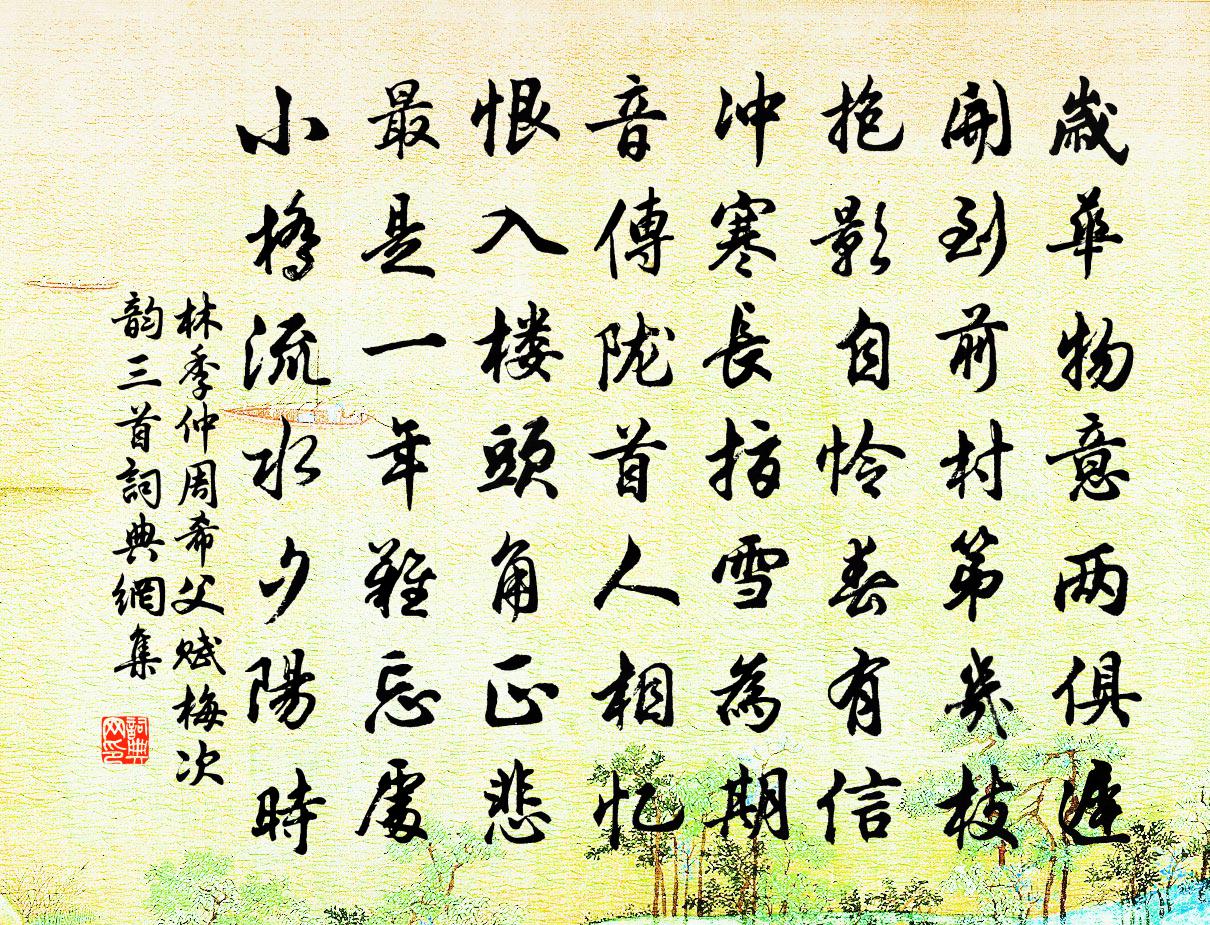 歲華物意两俱遲
開到前村第幾枝
抱影自怜春有信
冲寒長指雪為期
音傳陇首人相忆
恨入楼頭角正悲
最是一年難忘處
小橋流水夕陽時
林季仲周希父赋梅次
韵三首詞典網集
詞典网印